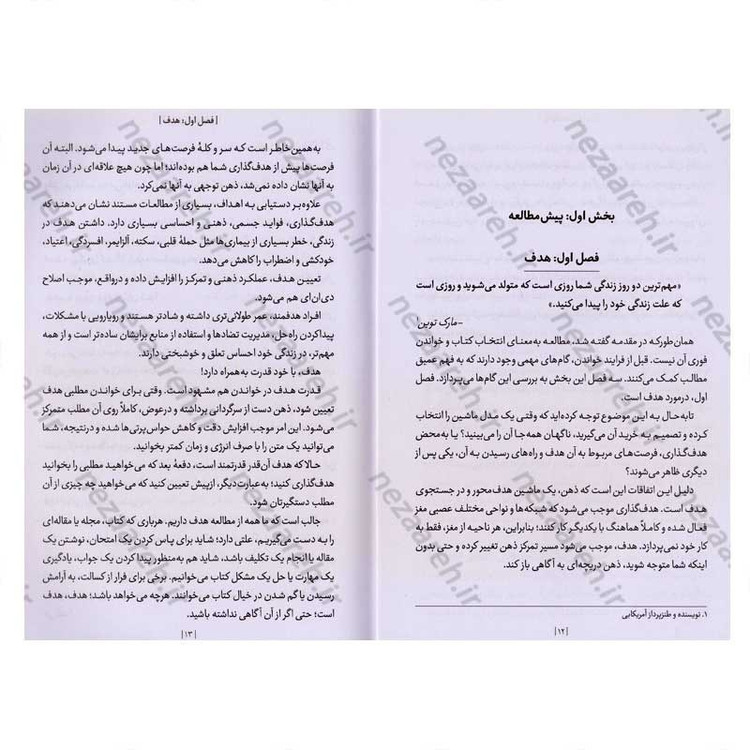 بخش اول: پیش‌مطالعه
فصل اول: هدف
«مهم‌ترین دو روز زندگی شما روزی است که متولد می‌شوید و روزی است
که علت زندگی خود را پیدا می‌کنید.»
–مارک توین¹
همان‌طورکه در مقدمه گفته شد، مطالعه به‌معنای انتخاب کتاب و خواندن
فوری آن نیست. قبل از فرایند خواندن، گام‌های مهمی وجود دارند که به فهم عمیق
مطالب کمک می‌کنند. سه فصل این بخش به بررسی این گام‌ها می‌پردازد. فصل
اول، درمورد هدف است.
تابه‌حال به این موضوع توجه کرده‌اید که وقتی یک مدل ماشین را انتخاب
کرده و تصمیم به خرید آن می‌گیرید، ناگهان همه‌جا آن را می‌بینید؟ یا به‌محض
هدف‌گذاری، فرصت‌های مربوط به آن هدف و راه‌های رسیدن به آن، یکی پس از
دیگری ظاهر می‌شوند؟
دلیل این اتفاقات این است که ذهن، یک ماشین هدف‌محور و در جستجوی
هدف است. هدف‌گذاری موجب می‌شود که شبکه‌ها و نواحی مختلف عصبی مغز
فعال شده و کاملاً هماهنگ با یکدیگر کار کنند؛ بنابراین، هر ناحیه از مغز، فقط به
کار خود نمی‌پردازد. هدف، موجب می‌شود مسیر تمرکز ذهن تغییر کرده و حتی بدون
اینکه شما متوجه شوید، ذهن دریچه‌ای به آگاهی باز کند.
۱. نویسنده و طنزپرداز آمریکایی
|۱۲|
| فصل اول: هدف |
به همین خاطر است که سر و کلهٔ فرصت‌های جدید پیدا می‌شود. البته آن
فرصت‌ها پیش از هدف‌گذاری شما هم بوده‌اند؛ اما چون هیچ علاقه‌ای در آن زمان
به آنها نشان داده نمی‌شد، ذهن توجهی به آنها نمی‌کرد.
علاوه‌بر دستیابی به اهداف، بسیاری از مطالعات مستند نشان می‌دهند که
هدف‌گذاری، فواید جسمی، ذهنی و احساسی بسیاری دارد. داشتن هدف در
زندگی، خطر بسیاری از بیماری‌ها مثل حملهٔ قلبی، سکته، آلزایمر، افسردگی، اعتیاد،
خودکشی و اضطراب را کاهش می‌دهد.
تعیین هدف، عملکرد ذهنی و تمرکز را افزایش داده و درواقع، موجب اصلاح
دی‌ان‌ای هم می‌شود.
افراد هدفمند، عمر طولانی‌تری داشته و شادتر هستند و رویارویی با مشکلات،
پیداکردن راه‌حل، مدیریت تضادها و استفاده از منابع برایشان ساده‌تر است و از همه
مهم‌تر، در زندگی خود احساس تعلق و خوشبختی دارند.
هدف، با خود قدرت به‌همراه دارد!
قدرت هدف در خواندن هم مشهود است. وقتی برای خواندن مطلبی هدف
تعیین شود، ذهن دست از سرگردانی برداشته و درعوض، کاملاً روی آن مطلب متمرکز
می‌شود. این امر موجب افزایش دقت و کاهش حواس‌پرتی‌ها شده و درنتیجه، شما
می‌توانید یک متن را با صرف انرژی و زمان کمتر بخوانید.
حالا که هدف آن‌قدر قدرتمند است، دفعهٔ بعد که می‌خواهید مطلبی را بخوانید
هدف‌گذاری کنید؛ به‌عبارت‌دیگر، ازپیش تعیین کنید که می‌خواهید چه چیزی از آن
مطلب دستگیرتان شود.
جالب است که ما همه از مطالعه هدف داریم. هرباری که کتاب، مجله یا مقاله‌ای
را به دست می‌گیریم، علتی دارد؛ شاید برای پاس کردن یک امتحان، نوشتن یک
مقاله یا انجام یک تکلیف باشد، شاید هم به‌منظور پیدا کردن یک جواب، یادگیری
یک مهارت یا حل یک مشکل کتاب می‌خوانیم. برخی برای فرار از کسالت، به آرامش
رسیدن یا گم شدن در خیال کتاب می‌خوانند. هرچه می‌خواهد باشد؛ هدف، هدف
است؛ حتی اگر از آن آگاهی نداشته باشید.
|۱۳|
nezaareh.ir
nezaareh.ir
nezaareh.ir
nezaareh.ir
nezaareh.ir
nezaareh.ir